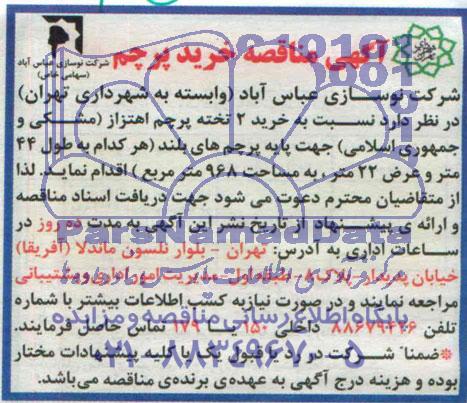 آگهی مناقصه خرید پرچم
شرکت نوسازی عباس آباد
(سهامی خاص)
شرکت نوسازی عباس آباد (وابسته به شهرداری تهران)
در نظر دارد نسبت به خرید ۲ تخته پرچم اهتزاز (مشکی و
جمهوری اسلامی) جهت پایه پرچم های بلند (هر کدام به طول ۴۴
متر و عرض ۲۲ متر ، به مساحت ۹۶۸ متر مربع) اقدام نماید. لذا
از متقاضیان محترم دعوت می شود جهت دریافت اسناد مناقصه
و ارائه ی پیشنهاد از تاریخ نشر این آگهی به مدت ده روز در
ساعات اداری به آدرس: تهران - بلوار نلسون ماندلا (آفریقا)
خیابان پدیدار - پلاک - طبقه اول - مدیریت امور اداری و پشتیبانی
مراجعه نمایند و در صورت نیاز به کسب اطلاعات بیشتر با شماره
تلفن داخلی ۱۵۰ یا ۱۷۹ تماس حاصل فرمایند.
*ضمناً شرکت در رد یا قبول یک یا کلیه پیشنهادات مختار
بوده و هزینه درج آگهی به عهده‌ی برنده‌ی مناقصه می‌باشد.
ParsNamadData
پایگاه اطلاع رسانی مناقصه و مزایده
۰۲۱-۸۸۳۴۹۶۷۰-۵